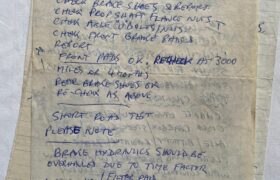 CHECK BRAKE SHOES & REPORT
CHECK PROP SHAFT FLANGE NUTS
CHECK AXLE U BOLTS/NUTS
CHECK FRONT BRAKE PADS &
REPORT
FRONT PADS OK, RECHECK AT 3000
MILES OR 4 MONTHS
REAR BRAKE SHOES OK
RE-CHECK AS ABOVE
SHORT ROAD TEST
PLEASE NOTE
BRAKE HYDRAULICS SHOULD BE
OVERHAULED DUE TO TIME FACTOR
1 FILTER